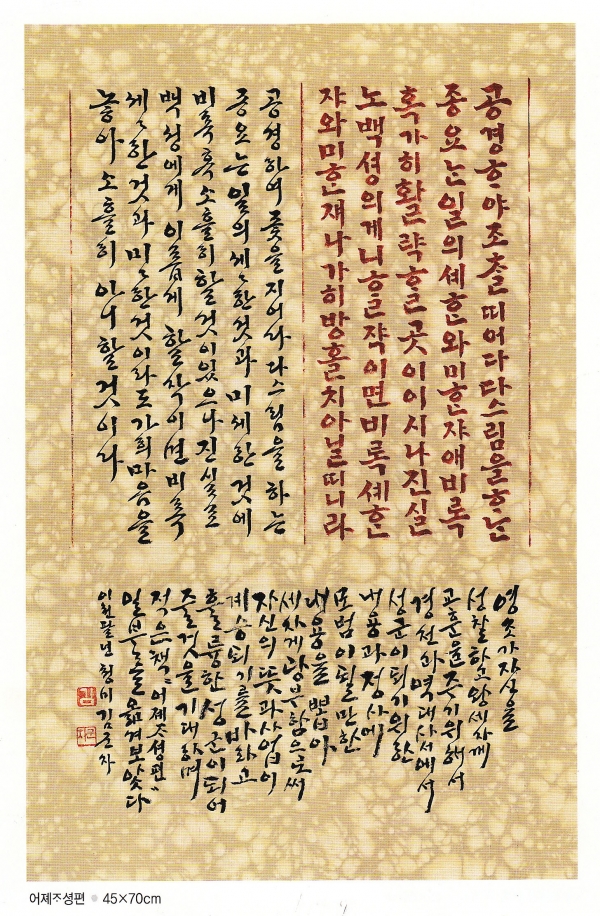 공경ᄒᆞ야 조촐 띠어다 다ᄉᆞ림을 ᄒᆞᄂᆞᆫ
종요ᄂᆞᆫ 일의 셰ᄒᆞᆫ와 미ᄒᆞᆫ쟈애 비록
혹 가히 활략ᄒᆞᆯ 곳이 이시나 진실
노 백셩의게 니ᄒᆞᆯ쟉이면 비록 셰ᄒᆞᆫ
쟈와 미ᄒᆞᆫ재나 가히 방홀치 아닐띠니라
공경하여 좇을지어라 다스림을 하는
종요는 일의 세세한 것과 미세한 것에
비록 혹 소홀히 할 것이 있으나 진실로
백성에게 이롭게 할 작이면 비록
세세한 것과 미미한 것이라도 가희 마음을
놓아 소홀히 아니 할 것이라
영조가 자신을
성찰하고 왕세자께
교훈을 주기 위해서
경전과 역대사서에서
성군이 되기 위한
내용과 정사에
모범이 될 만한
내용을 뽑아
세자께 광부함으로써
자신의 뜻과 사업이
계승되기를 바라고
훌륭한 성군이 되어
줄 것을 기대하며
적은 책 어제조셩편"
일부분을 옮겨보았다
이천팔년 청비 김근자
어제조셩편 • 45×70cm